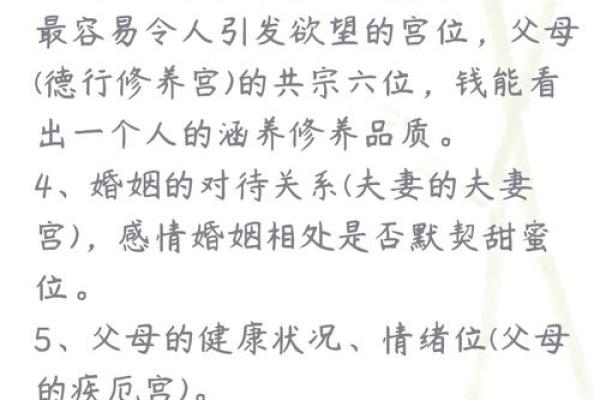 最容易令人引发欲望的宫位，父母
(德行修养宫)的共宗六位，钱能看
出一个人的涵养修养品质。
4、婚姻的对待关系(夫妻的夫妻
宫)，感情婚姻相处是否默契甜蜜
位。
5、父母的健康状况、情绪位(父母
的疾厄宫)。